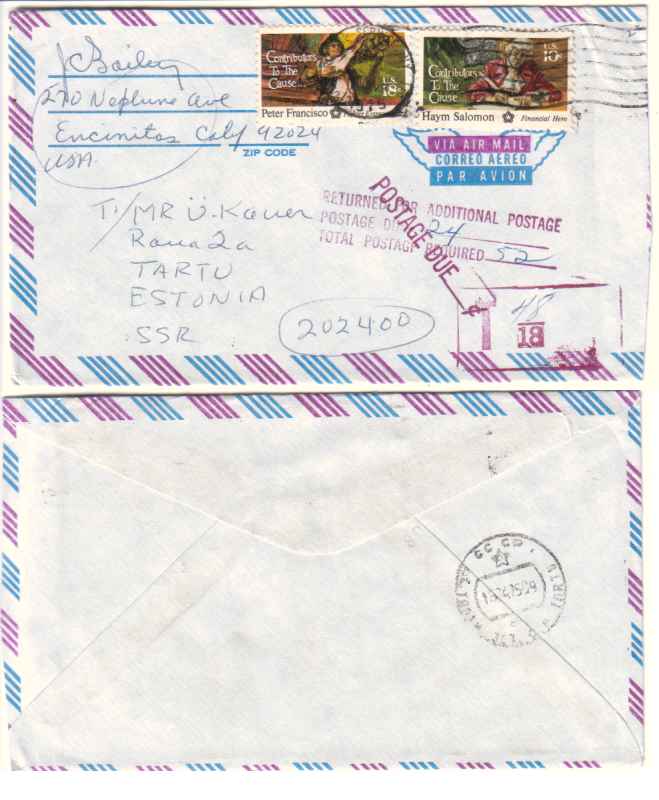 JC Bailey
270 Neptune Ave
Encinitas Calif 92024
USA
ZIP CODE
Contributors
To The
Cause...
U.S.
18c
Peter Francisco
Contributors
To The
Cause...
U.S.
10c
Haym Salomon
Financial Hero
VIA AIR MAIL
CORREO AEREO
PAR AVION
RETURNED FOR ADDITIONAL POSTAGE
POSTAGE DUE 24
TOTAL POSTAGE REQUIRED 52
POSTAGE DUE
¢
T./MR Ü. Kauer
TARTU
ESTONIA
SSR
202400
48
18